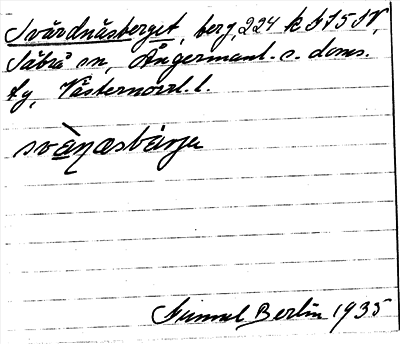 Svärdnäsberget, berg, 224 k f 15 SV,
Säbrå sn, Ångermanl. s. doms.
fg, Västernorrl. l.
svä̀ŋæsbárjə
Gunnel Berlin 1935